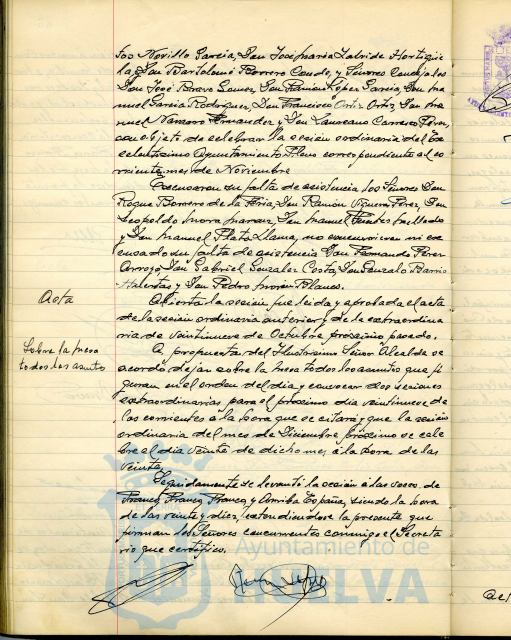 tos Novillo García, Don José María Zalvide Hortigüe
la, Don Bartolomé Borrero Conde, y Señores Concejales
Don José Bravo Gómez, Don Ramón López García, Don Ma
nuel García Rodríguez, Don Francisco Ortiz Ortiz, Don Ma
nuel Navarro Fernández y Don Laureano Carrasco Pérez,
con objeto de celebrar la sesión ordinaria del Ex
celentísimo Ayuntamiento Pleno correspondiente al co
rriente mes de Noviembre
Excusaron su falta de asistencia los Señores Don
Roque Borrero de la Feria, Don Ramón Viguera Pérez, Don
Leopoldo Mora Don Manuel Fuentes
y Don Manuel Plata Llama, no concurrieron ni ex
cusado su falta de asistencia Don Fernando Pérez
Arroyo, Don Gabriel González Costa, Don Gonzalo Barrio
y Don Pedro Morón Blanco.
Acta
Abierta la sesión fue leída y aprobada el acta
de la sesión ordinaria anterior y de la extraordina
ria de veintinueve de Octubre próximo pasado.
Sobre la mesa
todos los asuntos
A propuesta del Ilustrísimo Señor Alcalde se
acordó dejar sobre la mesa todos los asuntos que fi
guran en el orden del día y convocar dos sesiones
extraordinarias para el próximo día veintinueve de
los corrientes a la hora que se citará y que la sesión
ordinaria del mes de Diciembre próximo se cele
bre el día veinte de dicho mes, a la hora de las
veinte.
Seguidamente se levantó la sesión a las voces de
Franco, Franco, Franco, y Arriba España, siendo la hora
de las veinte y diez, extendiéndose la presente que
firman los Señores concurrentes conmigo el Secreta
rio que certifico.
Ayuntamiento de
HUELVA